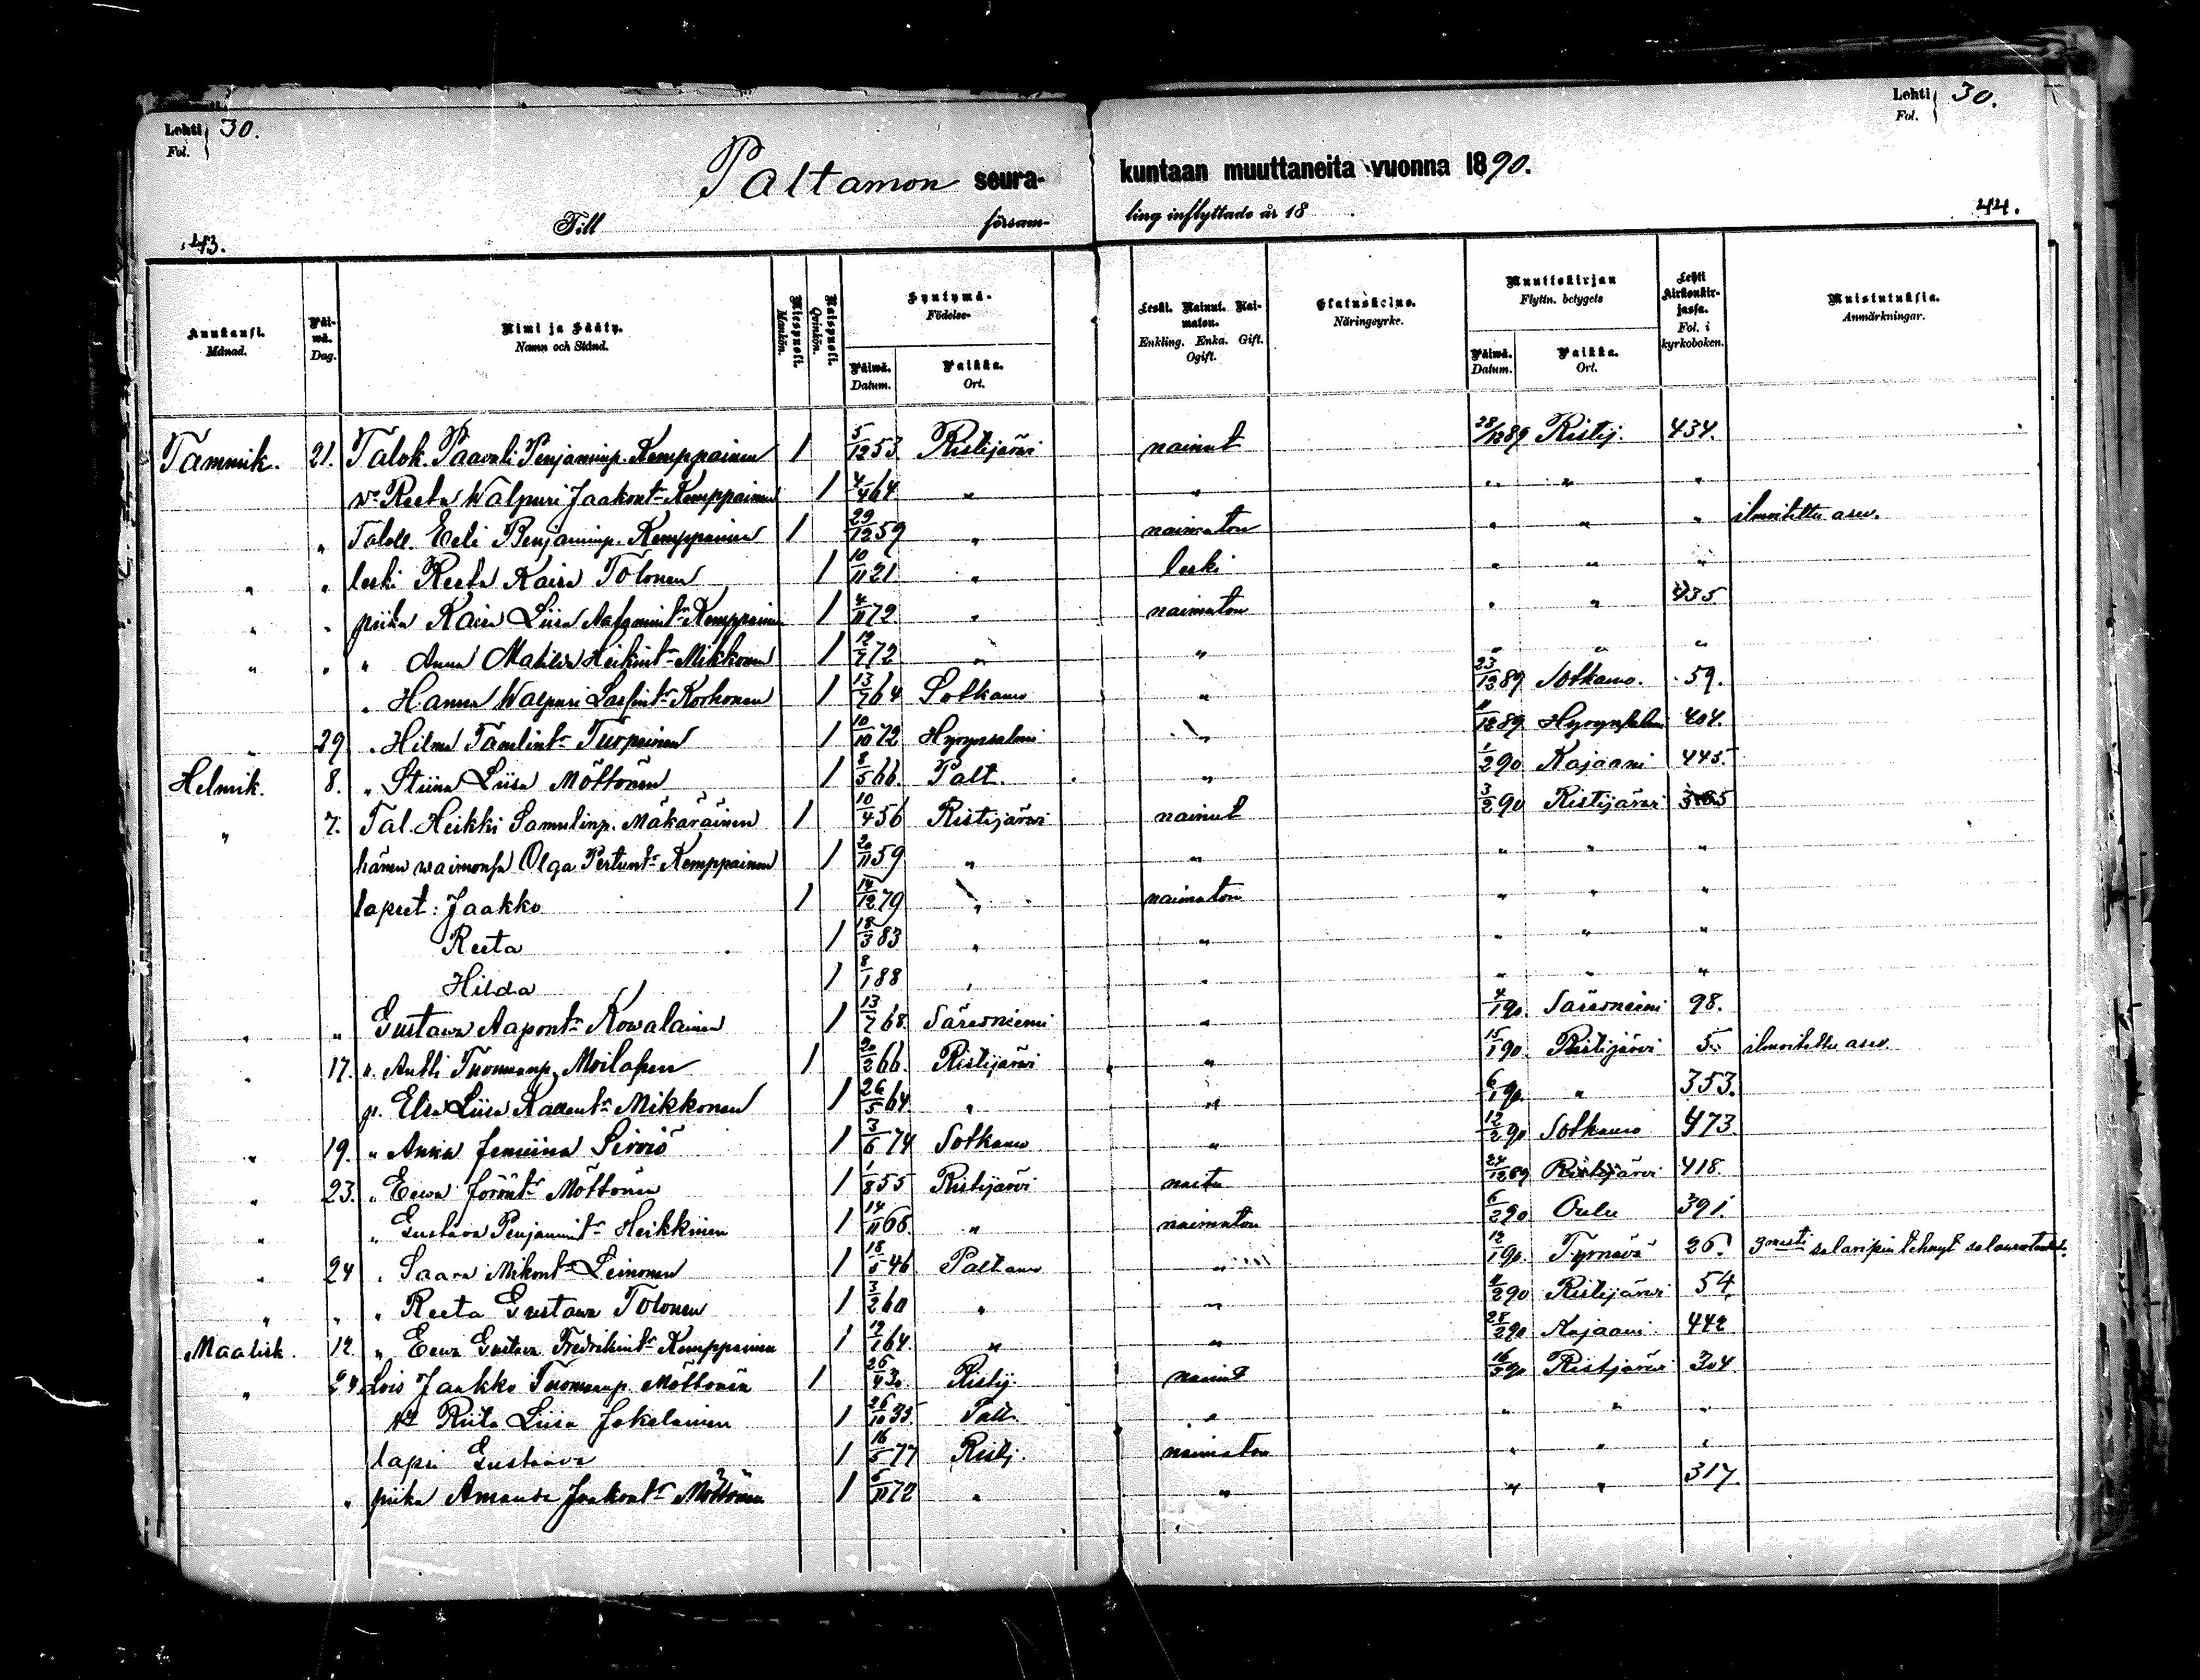 Lehti 30.
Fol.
Lehti 30.
Fol.
Paltamon seura- kuntaan muuttaneita vuonna 1890.
Till församling inflyttade år 18
43.
44.
Kuukausi. Månad.
Päiwä. Dag.
Nimi ja Sääty. Namn och Stånd.
Miespuoli. Mankön.
Naispuoli. Qvinkön.
Syntymä- Födelse-
Päiwä. Datum.
Paikka. Ort.
Leski. Nainut. Naimaton. Enkling. Enka. Gift. Ogift.
Elatuskeino. Näringsyrke.
Muuttokirjan Flyttn. betygets
Päiwä. Datum.
Paikka. Ort.
Lehti kirkonkirjassa. Fol. i kyrkoboken.
Muistutuksia. Anmärkningar.
Tammik. 21. Talok. Paavali Penjaminp. Kemppainen 1 5/12 53 Ristijärvi nainut 28/12 89 Ristij. 434.
vo Reeta Walpuri Jaakont. Kemppainen 1 4/4 64 " " " " "
" Taloll. Eeli Benjaminp. Kemppainen 1 29/12 59 " naimaton " " " ilmoitettu asew.
" " leski Reeta Kaisa Tolonen 1 10/11 21 " leski " " "
" " piika Kaisa Liisa Kemppainen 1 4/11 72 " naimaton " " 435.
" " " Anna Matilda Heikint. Mikkonen 1 12/7 72 " " " " "
" Hanna Walpuri Lassint. Korhonen 1 13/7 64 Sotkamo " 23/12 89 Sotkamo. 59.
" 29 " Hilma Tanelint. Turpeinen 1 10/10 72 Hyrynsalmi " 11/12 89 Hyrynsalmi 404.
Helmik. 8. " Stiina Liisa Möttönen 1 8/5 66. Palt. " 1/2 90 Kajaani 445.
" 7. Tal. Heikki Samulinp. Mäkäräinen 1 10/4 56 Ristijärvi nainut 3/2 90 Ristijärvi
hänen waimonsa Olga Pertunt. Kemppainen 1 20/11 59 " " " " "
lapset: Jaakko 1 14/12 79 " naimaton " " "
Reeta 1 18/3 83 " " " " "
Hilda 1 8/1 88 " " " " "
" " Gustawa Aapont. Kowalainen 1 13/7 68. Säresniemi " 4/1 90. Säresniemi 98.
" 17. " Antti Tuomaanp. Moilasen 1 20/2 66. Ristijärvi " 15/1 90. Ristijärvi 5. ilmoitettu asew.
p. Elsa Liisa Kallent. Mikkonen 1 26/5 64 " " 6/1 90. " 353.
" 19. " Anna Jemiina Sirviö 1 3/6 74 Sotkamo " 12/2 90 Sotkamo 473.
" 23. " Eewa Möttönen 1 1/8 55 Ristijärvi naitu 24/12 89 Ristijärvi 418.
" " Gustava Penjamint. Heikkinen 1 14/11 68. " naimaton 6/2 90 Oulu 391.
" 24 " Saara Mikont. Leinonen 1 18/5 46 Paltamo " 12/1 90. Tyrnävä 26. 3nnesti salavipin tehnyt
" " " Reeta Gustawa Tolonen 1 3/2 60 " " 11/2 90 Ristijärvi 54.
Maalisk. 12. " Eewa Gustava Fredrikint. Kemppainen 1 12/1 64. " " 28/2 90 Kajaani 442
" 24 Lois Jaakko Tuomaanp. Möttönen 1 25/4 30. Ristij. nainut 16/3 90 Ristijärvi 304.
vo Riita Liisa Jokelainen 1 26/10 35. Palt. " " " "
lapsi Gustaava 1 16/5 77 Ristj. naimaton " " "
" piika Amanda Jaakont. Möttönen 1 6/11 72 " " " " 317.